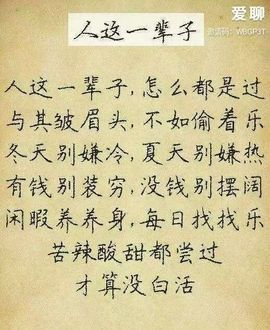 爱聊
邀请码：WBGP3T
人这一辈子
人这一辈子，怎么都是过
与其皱眉头，不如偷着乐
冬天别嫌冷，夏天别嫌热
有钱别装穷，没钱别摆阔
闲暇养养身，每日找找乐
苦辣酸甜都尝过
才算没白活